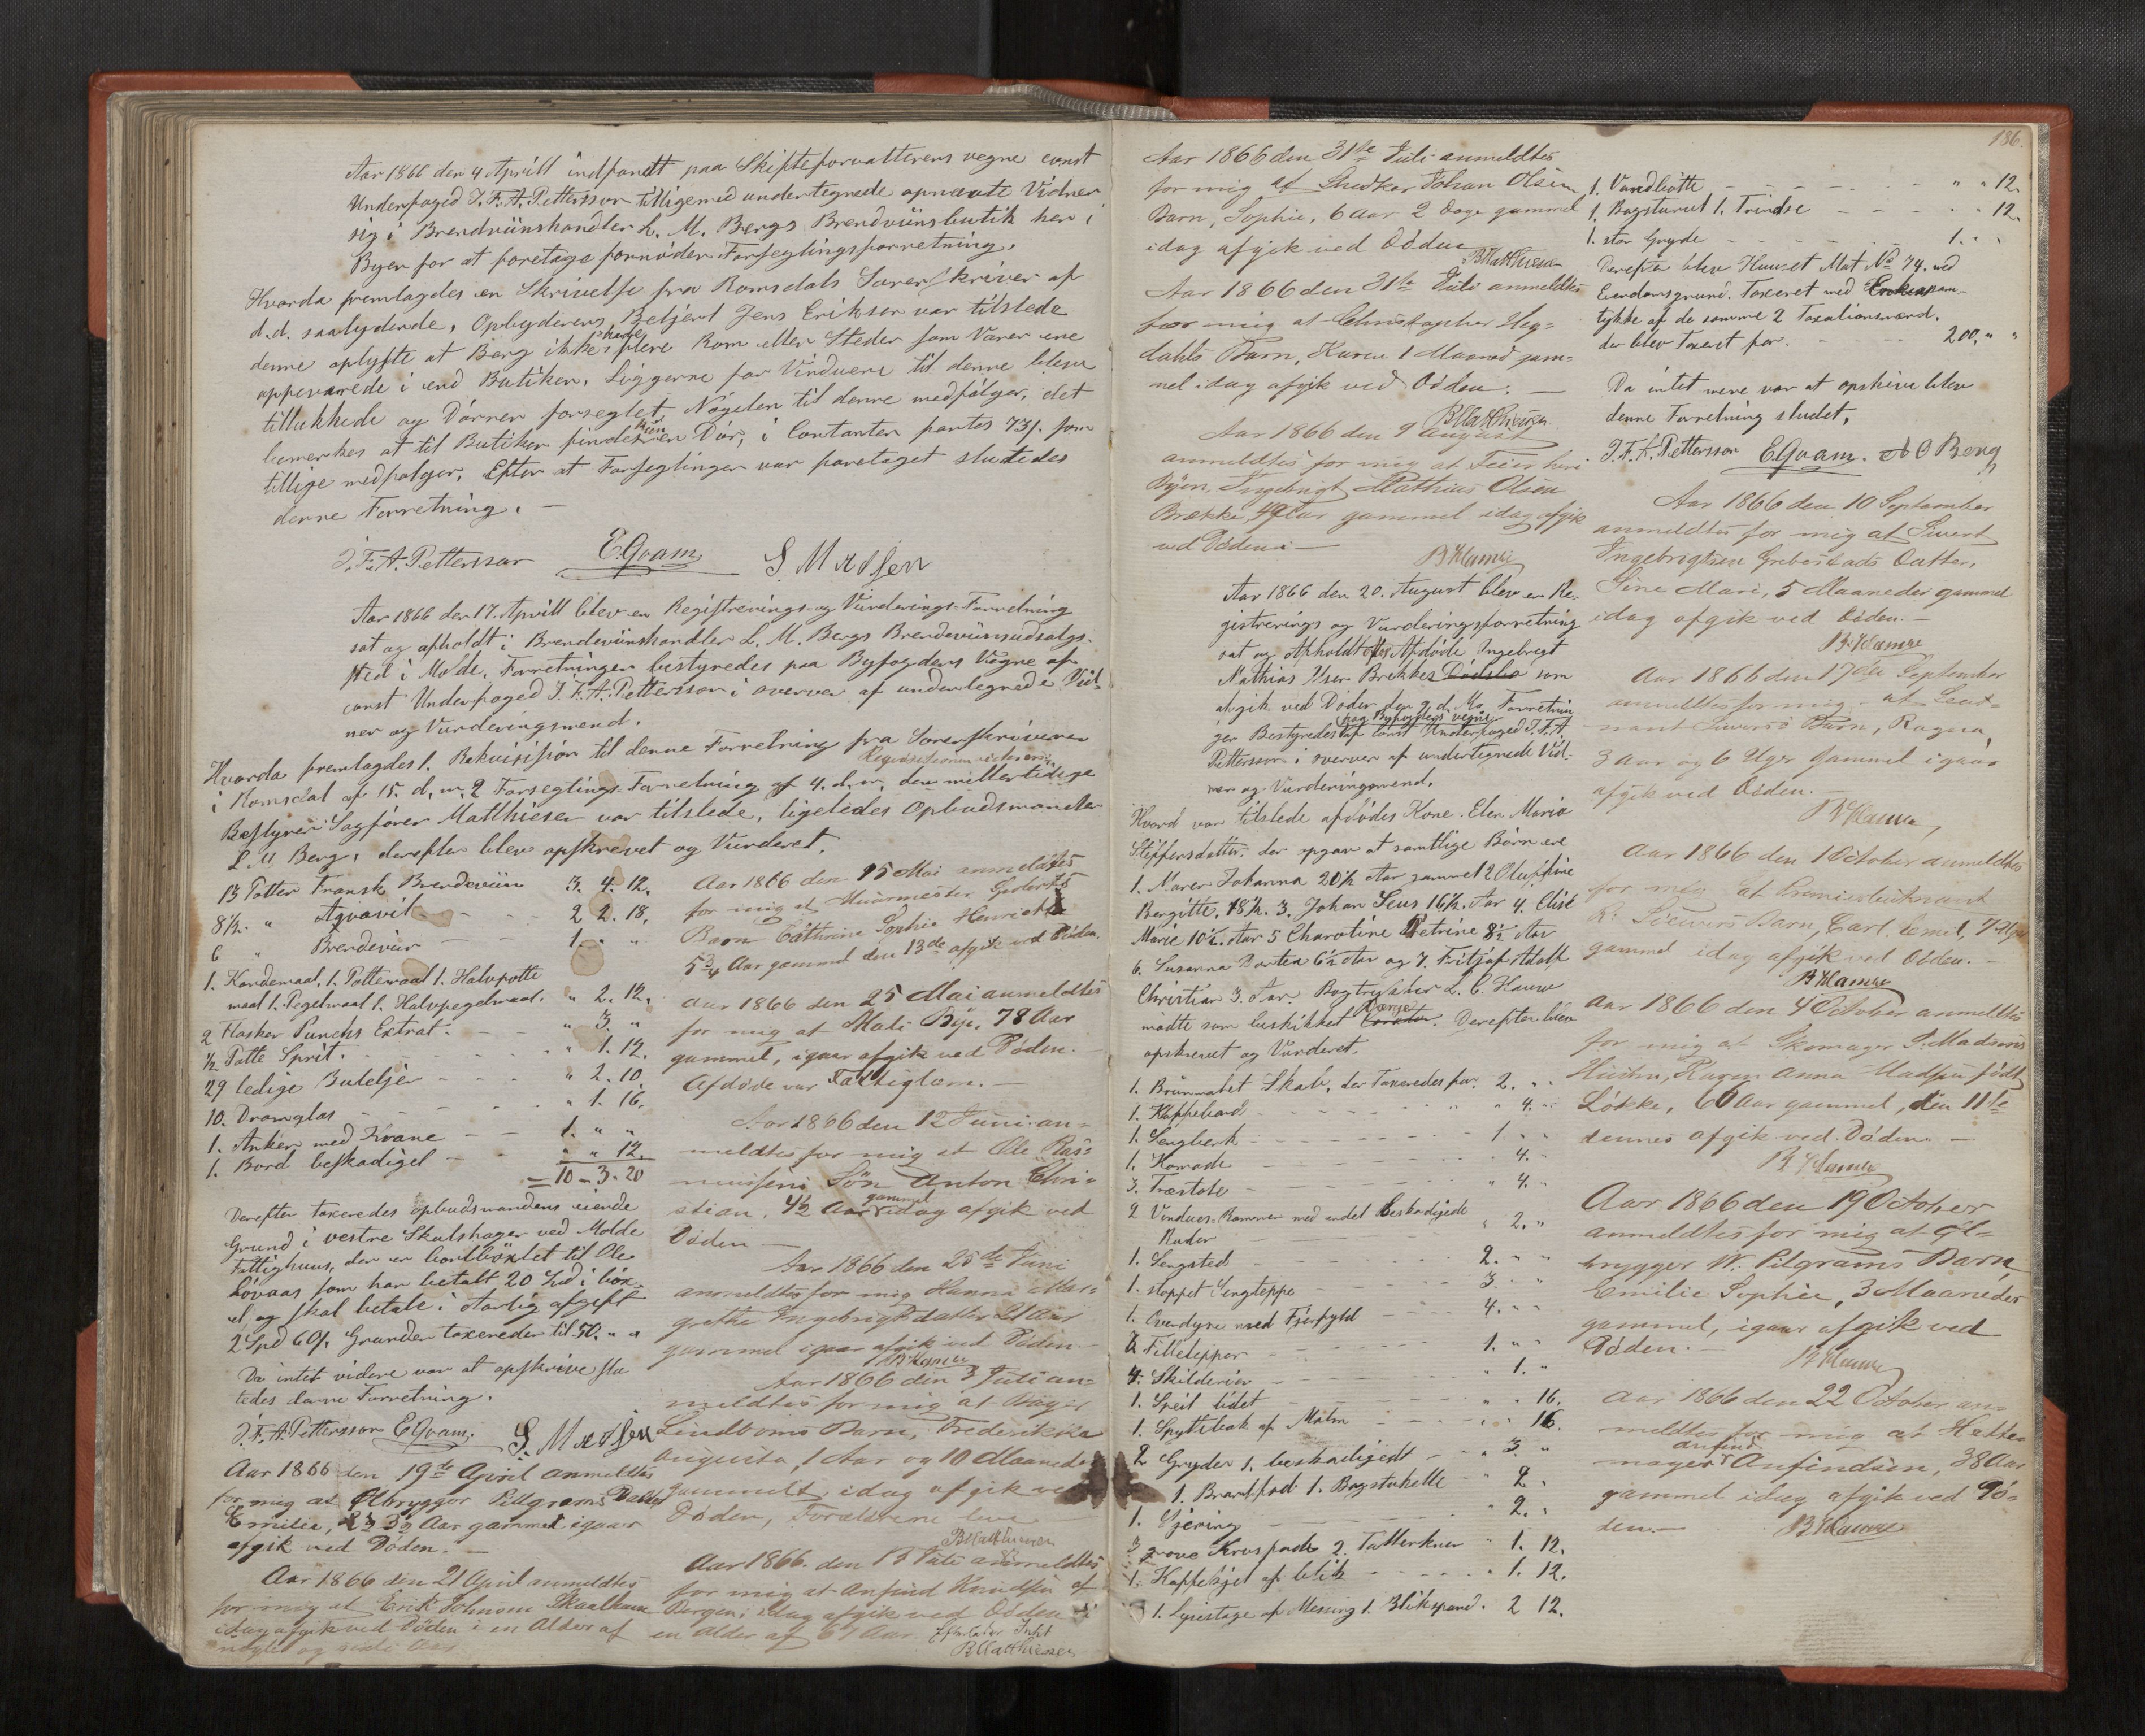 Aar 1866 den 4 Aprill indfandt paa Skifteforvalterens vegne const
Underfoged J. F. A. Pettersson tilligemed undertegnede opnævnte Vidner
sig i Brendviinshandler L. M. Bergs Brendviinsbutik her i
Byen for at foretage fornøden Forseglingsforretning.
Hvorda fremlagdes en Skrivelse fra Romsdals Sorenskriver af
d.d. saalydende, Opbyderens Betjent Jens Eriksen var tilstede
denne oplyste at Berg ikke havde flere Rom eller Steder som Varer ere
oppevarede i end Butiken. Liggerne for Vinduerne til denne bleve
tillukkede og Dørren forseglet Nøgelen til denne medfølger, det
bemerkes at til Butiken findes kun en Dør, i Contanter fantes 73 s. som
tillige medfølger. Efter at Forseglingen var foretaget sluttedes
denne Forretning. —
J. F. A. Pettersson E. Qvam S. Madsen
Aar 1866 den 17. Aprill blev en Registrerings- og Vurderings-Forretning
sat og afholdt i Brendeviinshandler L. M. Bergs Brendeviinsudsalgs-
sted i Molde. Forretningen bestyredes paa Byfogdens Vegne af
const Underfoged J. F. A. Pettersson i overvær af undertegnede Vid-
ner og Vurderingsmend.
Hvorda fremlagdes 1. Rekvisision til denne Forretning fra Sorenskriveren
i Romsdal af 15. d. m. 2 Forseglings-Forretning af 4. d. m. den midlertidige
Bestyrer Sagfører Matthiesen var tilstede, ligeledes Opbudsmanden
L. M. Berg, derefter blev opskrevet og Vurderet.
13 Potter Fransk Brendeviin 3. 4. 12.
8 1/2 " Aqvavit 2 2. 18.
6 " Brendeviin 1. " "
1. Kandemaal, 1. Pottemaal 1. Halvpotte
maal 1. Pegelmaal 1. Halvpegelmaal. " 2. 12.
2 Flasker Punchs Extrat. " 3. "
1/2 Potte Sprit. " 1. 12.
29 ledige Buteljer " 2. 10.
10. Dramglas " 1. 16.
1. Anker med Krane 1. " "
1. Bord beskadiget " " 12.
= 10 - 3 - 20
Derefter taxeredes opbudsmandens eiende
Grund i vestre Skulshagen ved Molde
Fattighuus, der er bortbøxlet til Ole
Løvaas som har betalt 20 Spd i bøx-
el, og skal betale i Aarlig afgift
2 Spd 60 s. Grunden taxereder til 50. " "
Da intet videre var at opskrive slu
tedes denne Forretning.
J. F. A. Pettersson E. Qvam. S. Madsen
Aar 1866 den 19de April anmeldtes
for mig at Ølbrygger Pillgrams Datter
Emilie, 3 1/2 Aar gammel igaar
afgik ved Døden. —
Aar 1866 den 21 April anmeldtes
for mig at Erik Johnsen
idag afgik ved Døden i en Alder af
Aar 1866 den 15 Mai anmeldtes
for mig at Muurmester
Barn Cathrine Sophie Henriette
5 3/4 Aar gammel den 13de afgik ved Døden.
Aar 1866 den 25 Mai anmeldtes
for mig at Mali Bye, 78 Aar
gammel, igaar afgik ved Døden.
Afdøde var Fattiglem. —
Aar 1866 den 12 Juni an-
meldtes for mig at Ole Ras-
mussens Søn Anton Chri-
stian, 4 1/2 Aar gammel idag afgik ved
Døden —
Aar 1866 den 25de Juni
anmeldtes for mig Hanna Mar-
grethe Ingebrigtsdatter 21 Aar
gammel igaar afgik ved Døden. —
Aar 1866 den 3 Juli an-
meldtes for mig at Bager
Lindboms Barn, Frederikka
Augusta, 1 Aar og 10 Maaneder
gammelt, idag afgik ved
Døden, Forældrene leve
BMatthiesen
Aar 1866. den 13 Juli anmeldtes
for mig at Anfind Knudsen af
Bergen, idag afgik ved Døden i
en Alder af 67 Aar. Efterlader Intet
BMatthiesen
186.
Aar 1866 den 31te Juli anmeldtes
for mig at Snedker Johan Olsen
Barn, Sophie, 6 Aar 2 Dage gammel
idag afgik ved Døden
BMatthiesen
Aar 1866 den 31te Juli anmeldtes
for mig at Christopher Heg-
dahls Barn, Karen 1 Maaned gam-
mel idag afgik ved Døden. —
BMatthiesen
Aar 1866 den 9 August
anmeldtes for mig at Feier heri
Byen, Ingebrigt Mathias Olsen
Brække, 49 Aar gammel idag afgik
ved Døden. —
B Hansse
Aar 1866 den 20. August blev en Re-
gistrerings og Vurderingsforretning
sat og Afholdt hos Afdøde Ingebregt
Mathias Olsen Brekkes Dødsbo som
afgik ved Døden den 9 d. M. Forretnin
gen Bestyredes paa Byfogdens vegne af const Underfoged J. F. A.
Pettersson i overvær af undertegnede Vid-
ner og Vurderingsmend.
Hvord var tilstede afdødes Kone Elen Maria
Steffensdatter. der opgav at samtlige Børn ere
1. Maren Johanna 20 1/2 Aar gammel 2 Oluffine
Bergitte, 18 1/2. 3. Johan Leus 16 1/2 Aar 4. Elise
Marie 10 1/2 Aar 5 Charotine Petrine 8 1/2 Aar
6. Susanna Bortea 6 1/2 Aar og 7. Fritjof Adolf
Christian 3. Aar. Bogtrykker L. C. Hansse
mødte som beskikket Værge. Derefter blev
opskrevet og Vurderet.
1. Brunmalet Skab, der Taxeredes for. 2. " "
1. Klappebord " 4. "
1. Sengbenk 1 " "
1. Komode " 4. "
3. Træstole " 4. "
2 Vindues-Rammer med endel beskadigede
Ruder " 2. "
1. Sengsted 2. " "
1. stoppet Sengteppe 3 " "
1. Overdyne med Fjerfyld 4. " "
2 Filletepper 1. " "
4. Skilderier " 1. "
1. Speil lidet " " 16.
1. Spyttebak af Malm " " 16.
2 Gryder 1. beskadiget " 3. "
1. Brandfod 1. Bagstehelle " 2. "
1. Gjering " 2. "
3 grove Kruspade 2. Tallerkner " 1. 12.
1. Kaffekjel af blik " 1. 12.
1. Lysestage af Messing 1. Blikspand. 2 12.
1. Vandbøtte " " 12.
1. Bagsturul 1. Trindse " " 12.
1. stor Gryde 1. " "
Derefter blev Huuset Mat No 74. med
Eiendomsgrund. Taxeret med Enkens sam-
tykke af de samme 2 Taxationsmænd.
der blev Taxeret for. 200, " "
Da intet mere var at opskrive blev
denne Forretning sludet,
J. F. A. Pettersson E. Qvam. A O Berg
Aar 1866 den 10 September
anmeldtes for mig at Sivert
Ingebrigtsen Grebstads Datter,
Sine Mari, 5 Maaneder gammel
idag afgik ved Døden. —
B Hansse
Aar 1866 den 17de September
anmeldtes for mig at Leut-
nant Siverts Barn, Ragna,
3 Aar og 6 Uger Gammel igaar
afgik ved Døden. —
B Hansse
Aar 1866 den 1 October anmeldtes
for mig at Premierleutenant
Barn, Carl Emil, 7 Uger
gammel idag afgik ved Døden. —
B Hansse
Aar 1866 den 4 October anmeldtes
for mig at Skomager S. Madsens
Hustru, Karen Anna Madsen født
Løkke, 60 Aar gammel, den 11te
dennes afgik ved Døden. —
B Hansse
Aar 1866 den 19 October
anmeldtes for mig at Øl-
brygger W. Pilgrams Barn,
Emilie Sophie, 3 Maaneder
gammel, igaar afgik ved
Døden. —
B Hansse
Aar 1866 den 22 October an-
meldtes for mig at Hatte-
mager Anfind Anfindsen, 38 Aar
gammel idag afgik ved Dø-
den. —
B Hansse